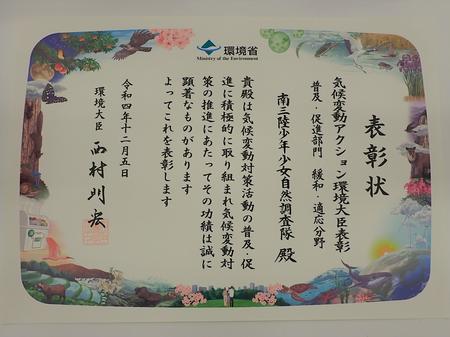 環境省
Ministry of the Environment
表彰状
気候変動アクション環境大臣表彰
普及・促進部門 緩和・適応分野
南三陸少年少女自然調査隊 殿
貴殿は気候変動対策活動の普及・促
進に積極的に取り組まれ気候変動対
策の推進にあたってその功績は誠に
顕著なものがあります
よってこれを表彰します
令和四年十二月五日
環境大臣 西村明宏